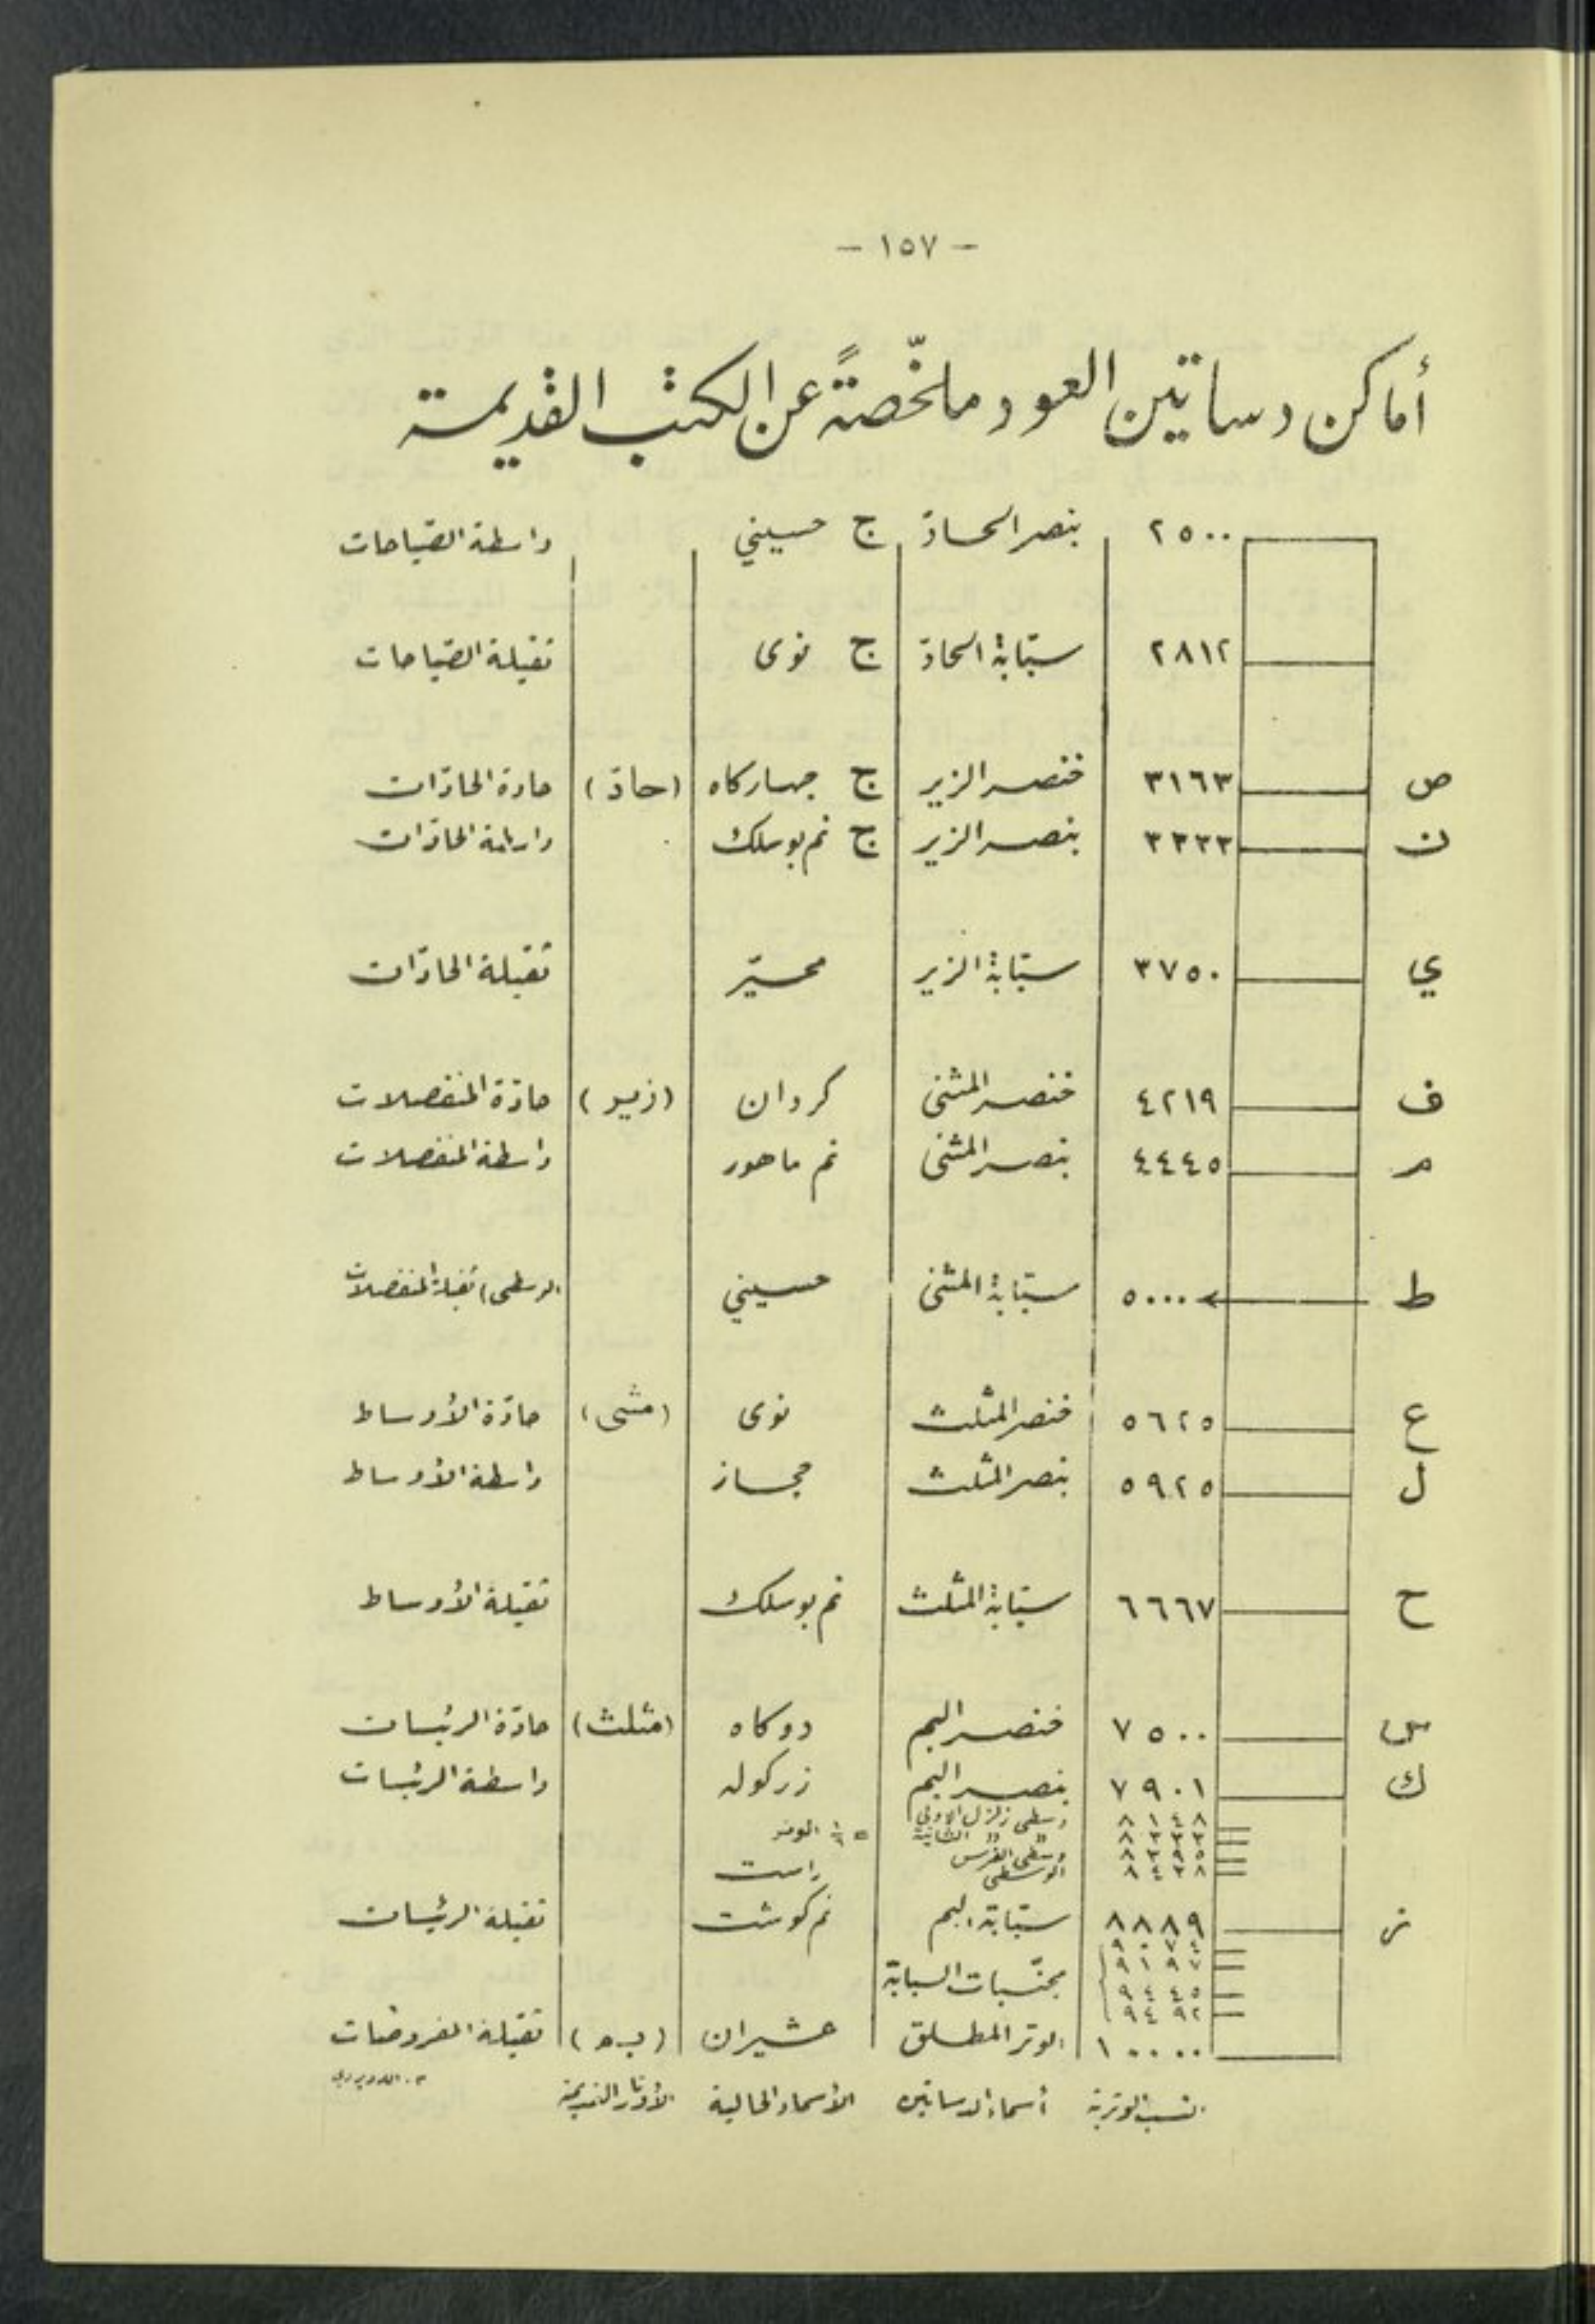 - ١٥٧ -
أماكن دساتين العود ملخّصةً عن الكتب القديمة
٢٥٠٠ بنصر الحادّ ج حسيني واسطة الصّياحات
٢٨١٢ سبّابة الحادّ ج نوى ثقيلة الصّياحات
ص ٣١٦٣ خنصر الزير ج جهاركاه (حادّ) حادة الحادّات
ن ٣٣٣٣ بنصر الزير ج نم بوسلك واسطة الحادّات
ي ٣٧٥٠ سبّابة الزير محيّر ثقيلة الحادّات
ف ٤٢١٩ خنصر المثنى كردان (زير) حادّة المنفصلات
م ٤٤٤٥ بنصر المثنى نم ماهور واسطة المنفصلات
ط ٥٠٠٠ سبّابة المثنى حسيني (الوسطى) ثقيلة المنفصلات
ع ٥٦٢٥ خنصر المثلث نوى (مثنى) حادّة الأوساط
ل ٥٩٢٥ بنصر المثلث حجاز واسطة الأوساط
ح ٦٦٦٧ سبّابة المثلث نم بوسلك ثقيلة الأوساط
س ٧٥٠٠ خنصر البم دوكاه (مثلث) حادّة الرئيسات
ك ٧٩٠١ بنصر البم زركوله واسطة الرئيسات
٨١٤٨ وسطى زلزل الاولى
٨٣٣٣ " " الثانية = ⅙ الوتر
٨٣٩٥ وسطى الفرس
٨٤٣٨ الوسطى راست
ز ٨٨٨٩ سبّابة البم نم كوشت ثقيلة الرئيسات
٩٠٧٤
٩١٩٧
مجنّبات السبابة
٩٤٤٥
٩٤٩٢
١٠٠٠٠ الوتر المطلق عشيران (بم) ثقيلة المفروضات
النسب الوترية أسماء الدساتين الأسماء الحالية الأوتار القديمة